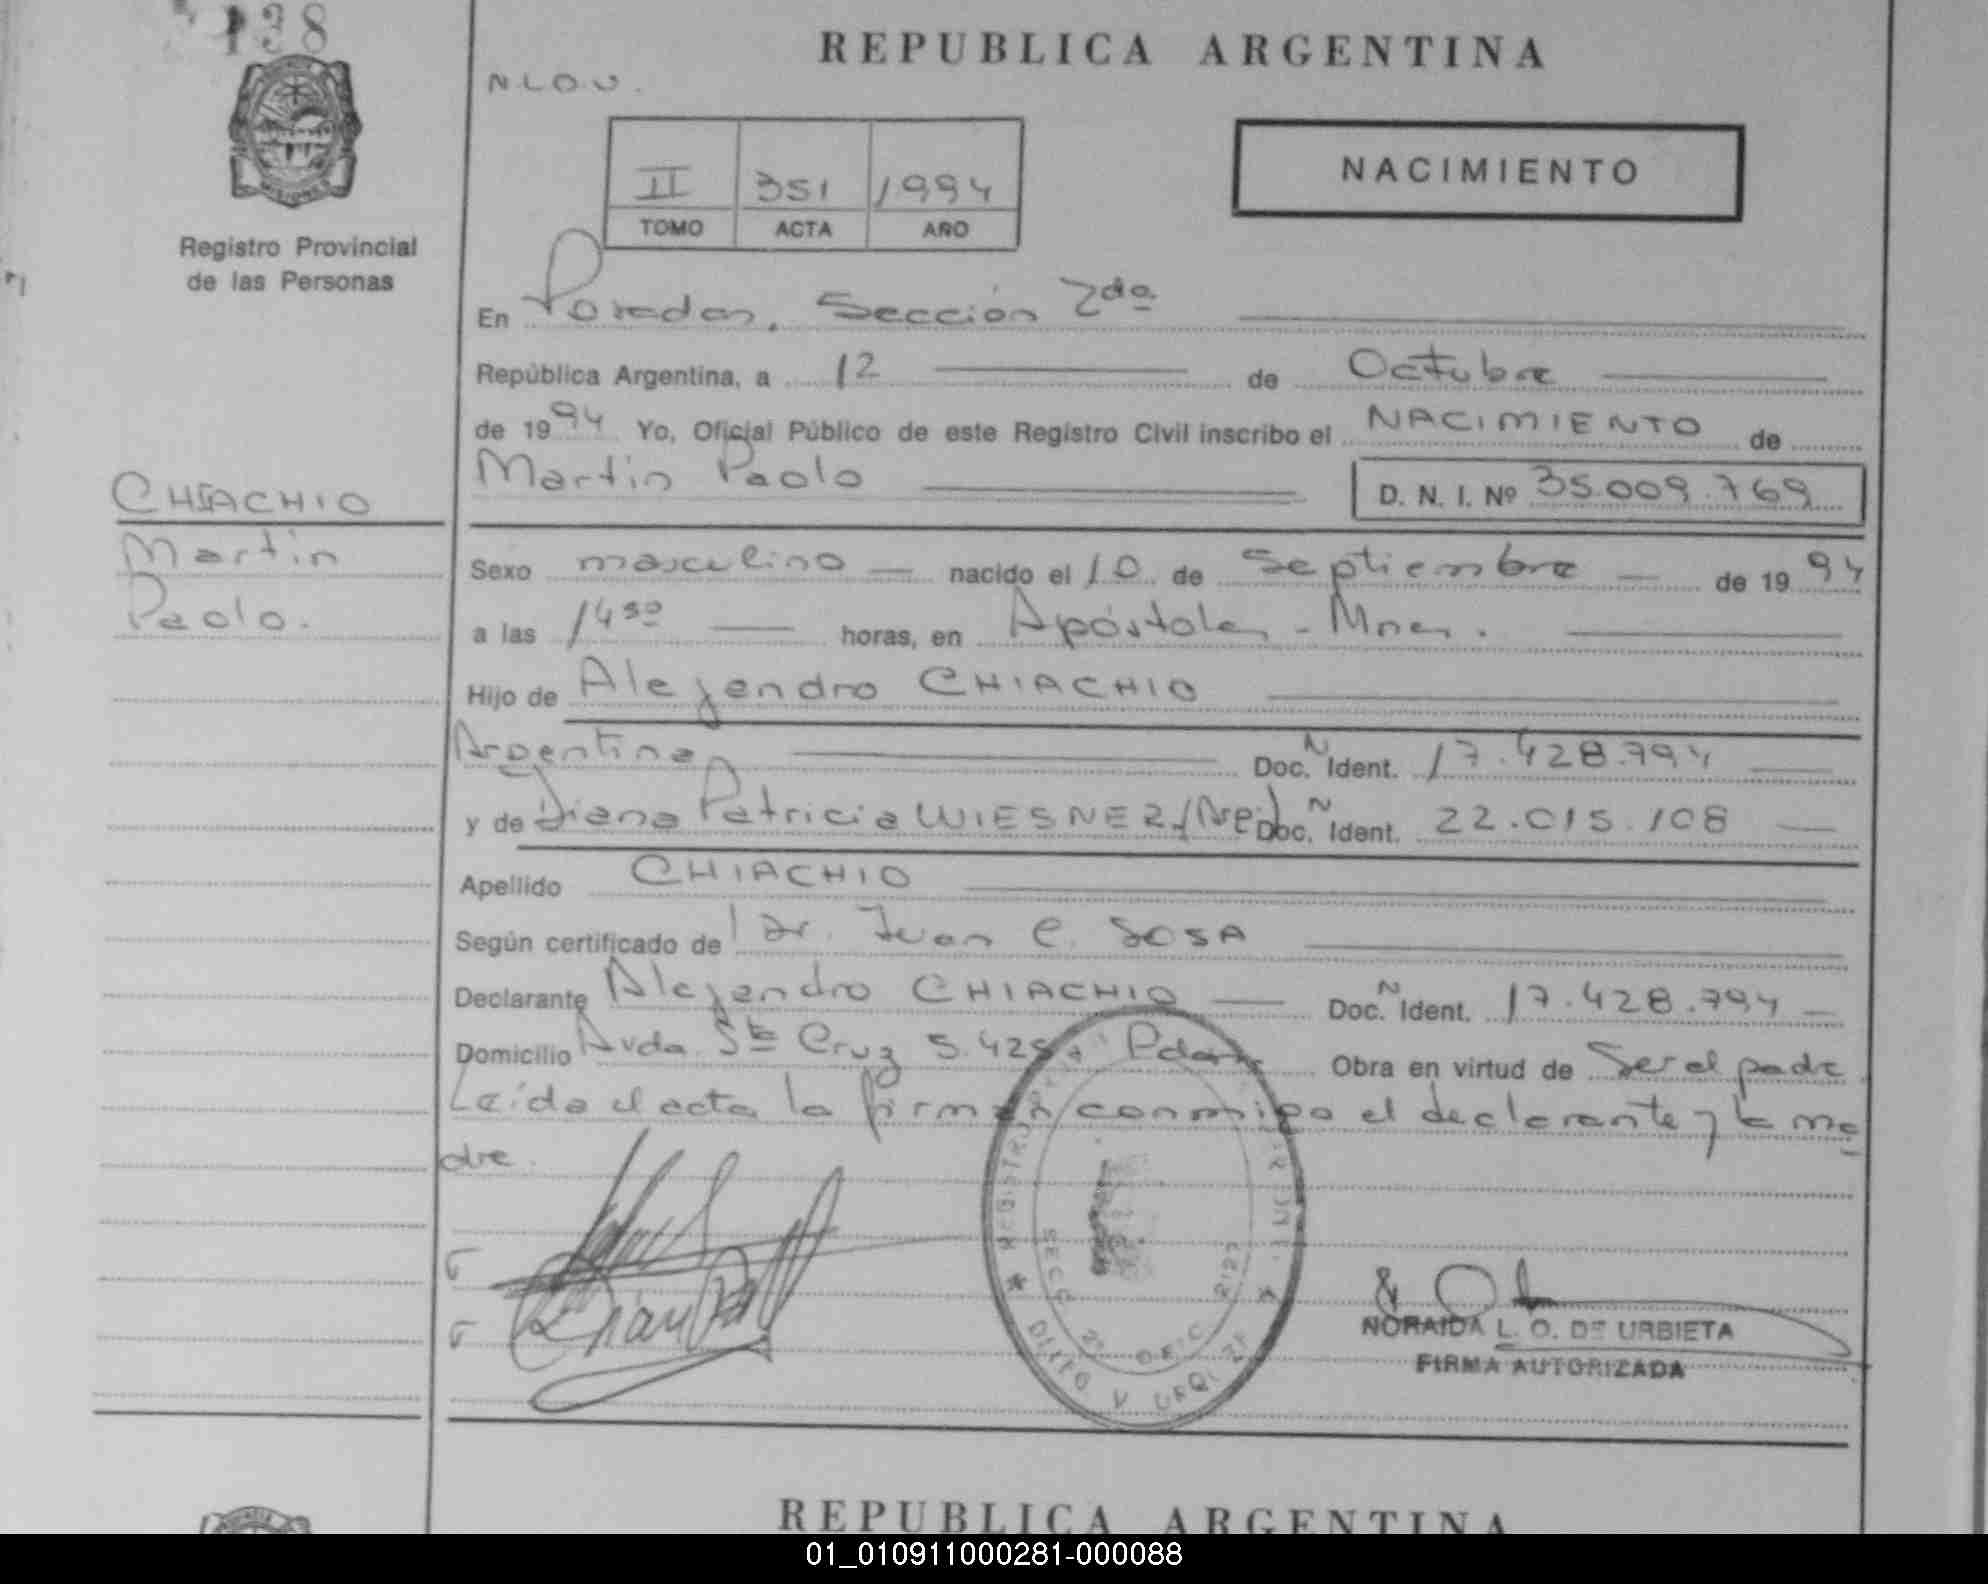 138
REPUBLICA ARGENTINA
N.L.O.U.
II 351 1994
TOMO ACTA AÑO
NACIMIENTO
Registro Provincial
de las Personas
En Posadas, Sección 2da
República Argentina, a 12 de Octubre
de 1994 Yo, Oficial Público de este Registro Civil inscribo el NACIMIENTO de
Martin Paolo D. N. I. Nº 35.009.769
CHIACHIO
Martin
Paolo.
Sexo masculino nacido el 10 de Septiembre de 1994
a las 14 30 horas, en Apóstoles - Mnes.
Hijo de Alejandro CHIACHIO
Argentina Doc. N Ident. 17.428.794
y de Diana Patricia WIESNER Doc. N Ident. 22.015.108
Apellido CHIACHIO
Según certificado de Dr. Juan C. SOSA
Declarante Alejandro CHIACHIO Doc. N Ident. 17.428.794
Domicilio Avda. Sta Cruz S. 425 Pdas Obra en virtud de Ser el padre
Leída el acta la firman conmigo el declarante y la ma
dre.
REGISTRO
SECC. 2a OFIC.
NORAIDA L. O. DE URBIETA
FIRMA AUTORIZADA
REPUBLICA ARGENTINA
01_010911000281-000088